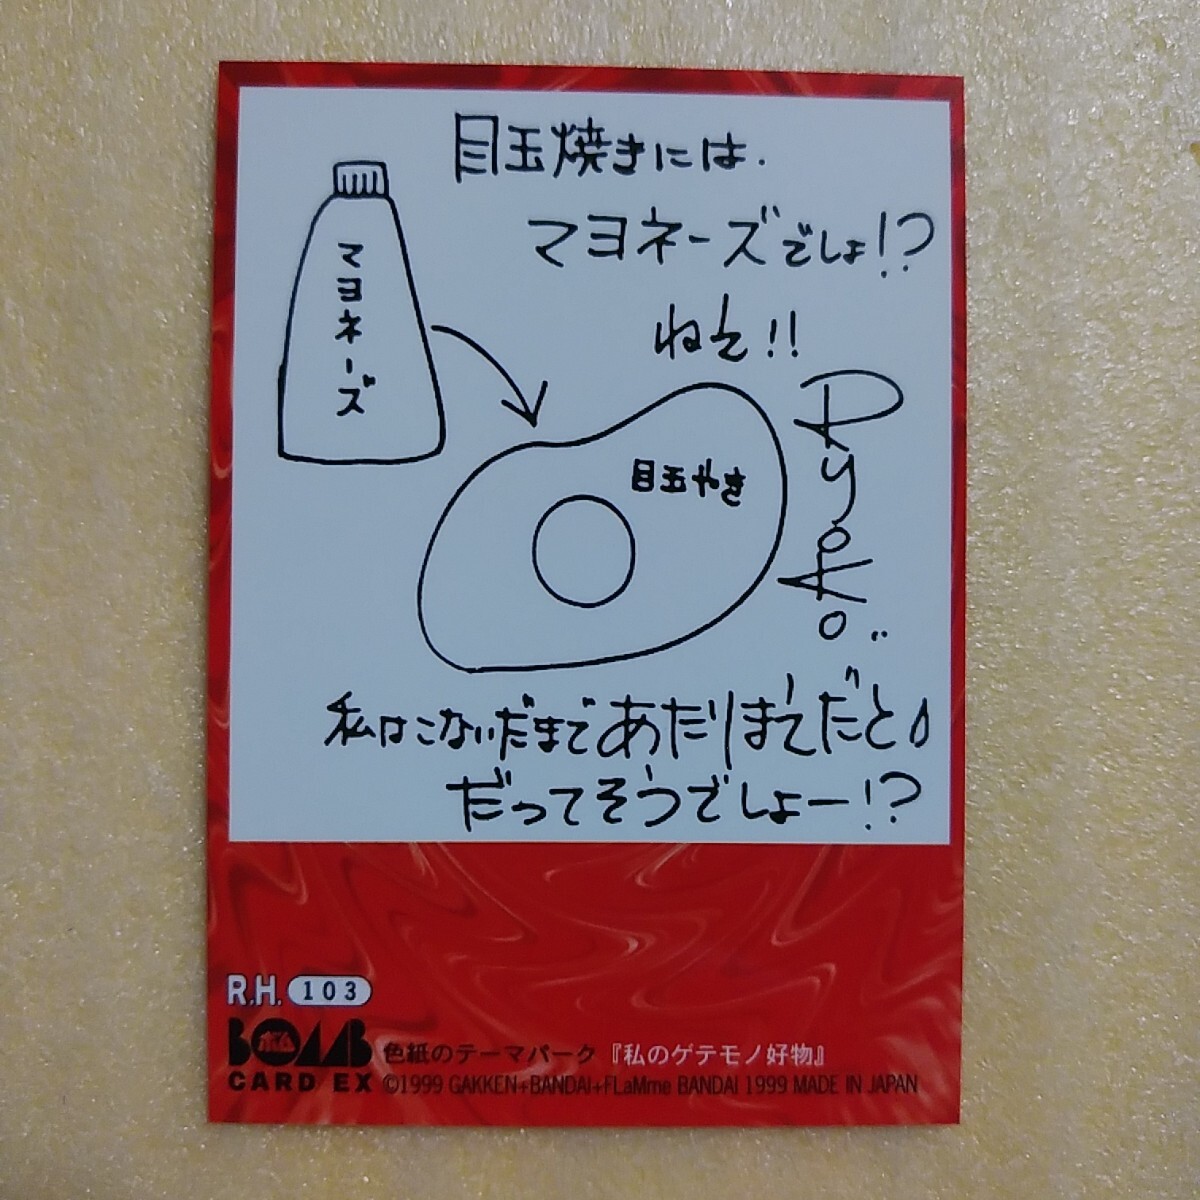 目玉焼きには.
マヨネーズでしょ!?
ねえ!!
マヨネーズ
目玉やき
Ryoko
私はこないだまであたりまえだと
だってそうでしょー!?
R.H. 103
BOMB
ボム
CARD EX
色紙のテーマパーク『私のゲテモノ好物』
©1999 GAKKEN+BANDAI+FLaMme BANDAI 1999 MADE IN JAPAN